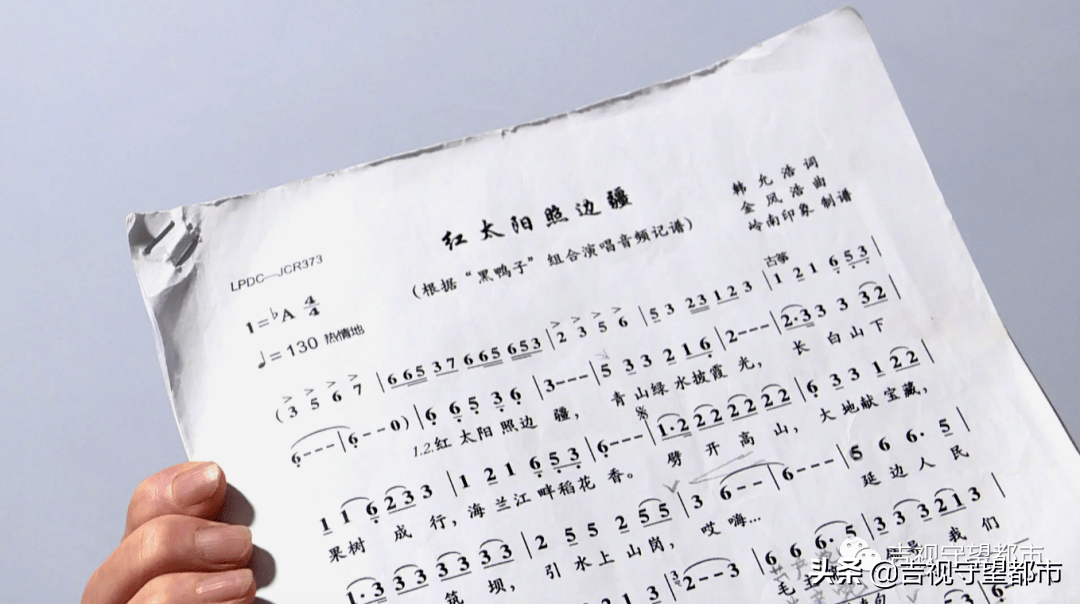 红太阳照边疆
(根据“黑鸭子”组合演唱音频记谱)
韩允浩 词
金凤浩 曲
岭南印象 制谱
LPDC—JCR373
1=♭A 4/4
♩=130 热情地
古筝
(3 5 6 7 | 6 6 5 3 7 6 6 5 6 5 3 | 2 3 5 6 | 5 3 2 3 1 2 3 | 1 2 1 6 5 3 |
6 - - - | 6 - - - 0) | 6 6 5 3 6 | 3 - - - | 5 3 3 2 1 6 | 2 - - - | 2·3 3 3 3 2 |
1.2.红太阳照边疆，青山绿水披霞光，长白山下
1 1 6 2 3 3 | 1 2 1 6 5 3 | 6 - - - | 1·2 2 2 2 2 2 2 | 6 3 3 1 2 2 |
果树成行，海兰江畔稻花香。劈开高山，大地献宝藏，
1·3 3 3 3 3 3 3 | 2 5 5 2 5 5 | 3 6 - - | 6 - - - | 5 6 6· 5 |
筑坝，引水上山岗，哎嗨… 延边人民
3 2 - - 3 | 6 6 6· 5 | 3 3 3 2 1 3 |
毛 我们
吉视守望都市
头条 @吉视守望都市